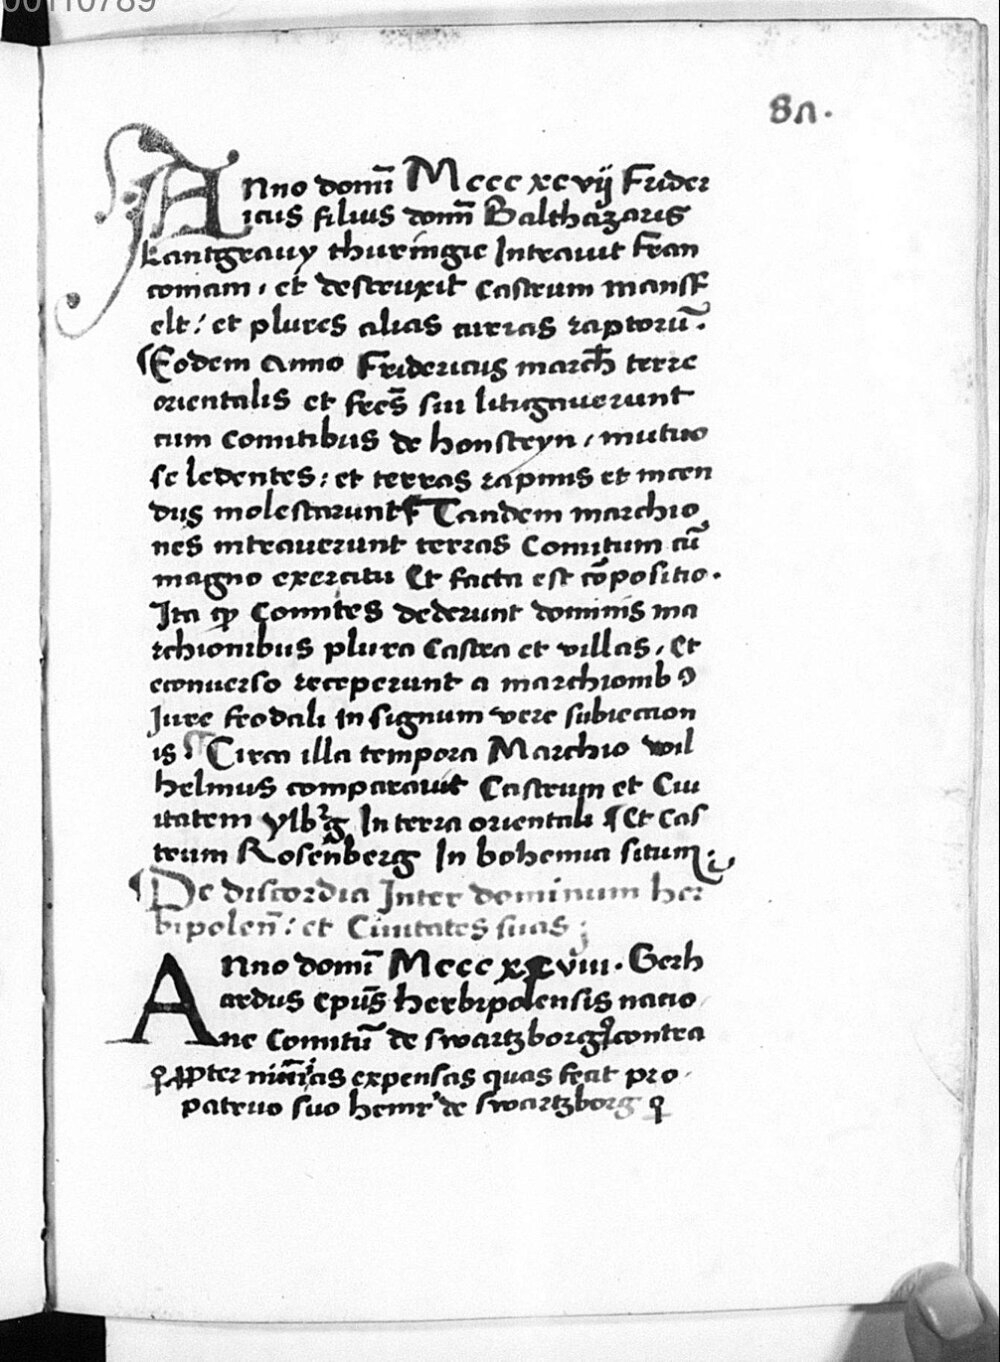 00110789
8Λ.
Anno domī Mccc xcvij Frider
icus filius domī Balthazaris
Lantgravy thuringie Intravit Fran
coniam, et destruxit Castrum mansf
elt: et plures alias curias raptorū.
¶Eodem Anno Fridericus march terre
orientalis et frēs sui litigaverunt
cum Comitibus de honsteyn, mutuo
se ledentes: et terras rapinis et incen
diis molestarunt ¶ Tandem marchio
nes intraverunt terras Comitum cū
magno exercitu Et facta est cōpositio.
Ita ꝙ Comites dederunt dominis ma
rchionibus plura Castra et villas, Et
econverso receperunt a marchionibꝰ
Jure feodali in signum vere subiection
is ¶ Circa illa tempora Marchio wil
helmus comparavit Castrum et Civ
itatem ylbʳg In terra orientali ¶ Et Cas
trum Rosēnberg In bohemia situm.
¶De discordia Inter dominum her
bipoleñ: et Civitates suas;
Anno domī Mccc xcviii. Gerh
ardus epūs herbipolensis natio
ne Comitū de swartzborg contra
propter nimias expensas quas fecit pro
patruo suo henrʳ de swartzborg